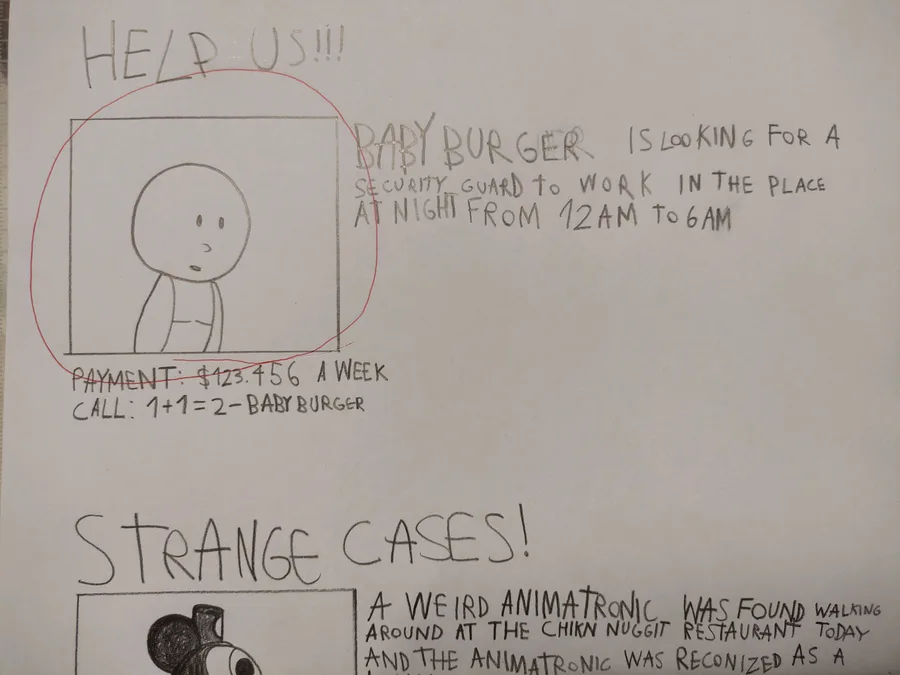 HELP US!!!
BABY BURGER IS LOOKING FOR A
SECURITY GUARD TO WORK IN THE PLACE
AT NIGHT FROM 12AM TO 6AM
PAYMENT: $123.456 A WEEK
CALL: 1+1=2-BABY BURGER
STRANGE CASES!
A WEIRD ANIMATRONIC WAS FOUND WALKING
AROUND AT THE CHIKN NUGGIT RESTAURANT TODAY
AND THE ANIMATRONIC WAS RECONIZED AS A